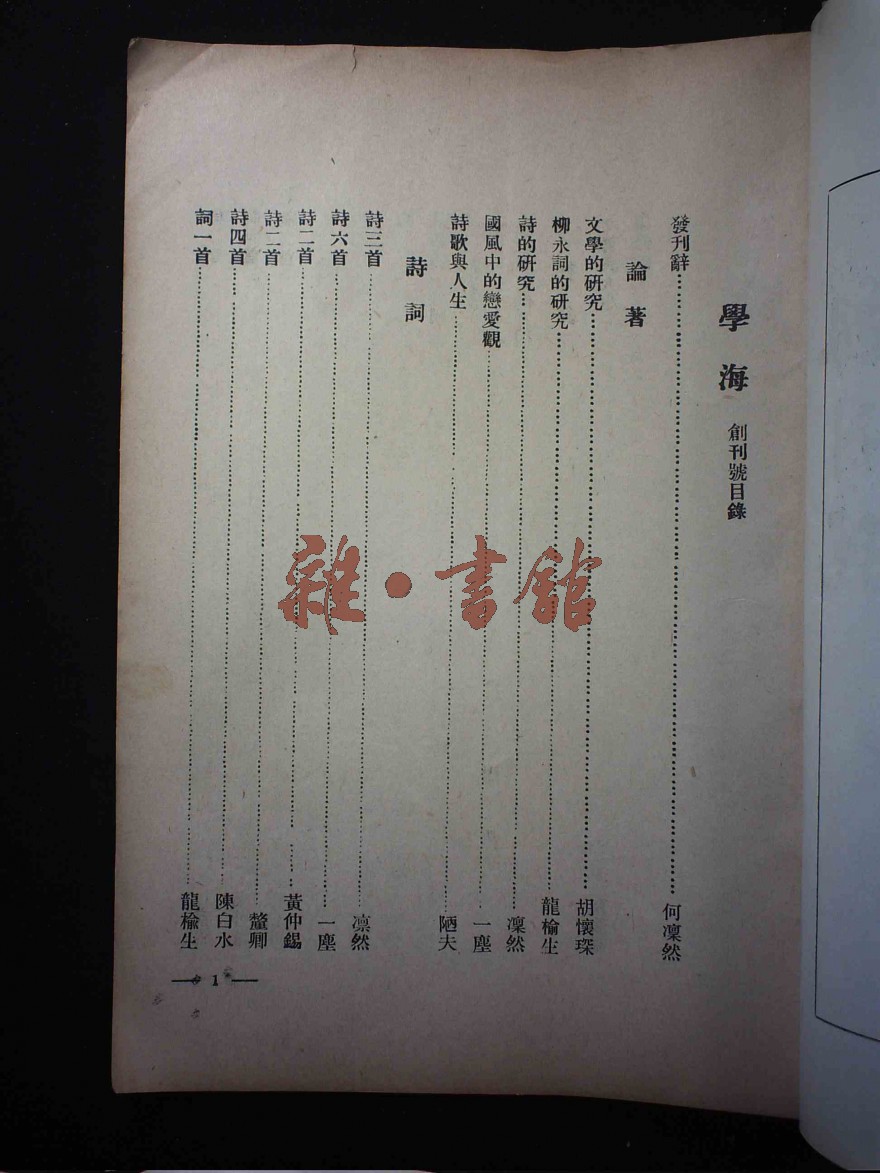 學海 創刊號目錄
發刊辭……何凜然
論著
文學的研究……胡懷琛
柳永詞的研究……龍楡生
詩的研究……凜然
國風中的戀愛觀……一塵
詩歌與人生……陋夫
詩詞
詩三首……凜然
詩六首……一塵
詩二首……黃仲錫
詩二首……螯卿
詩四首……陳白水
詞一首……龍楡生
— 1 —
雜·書館